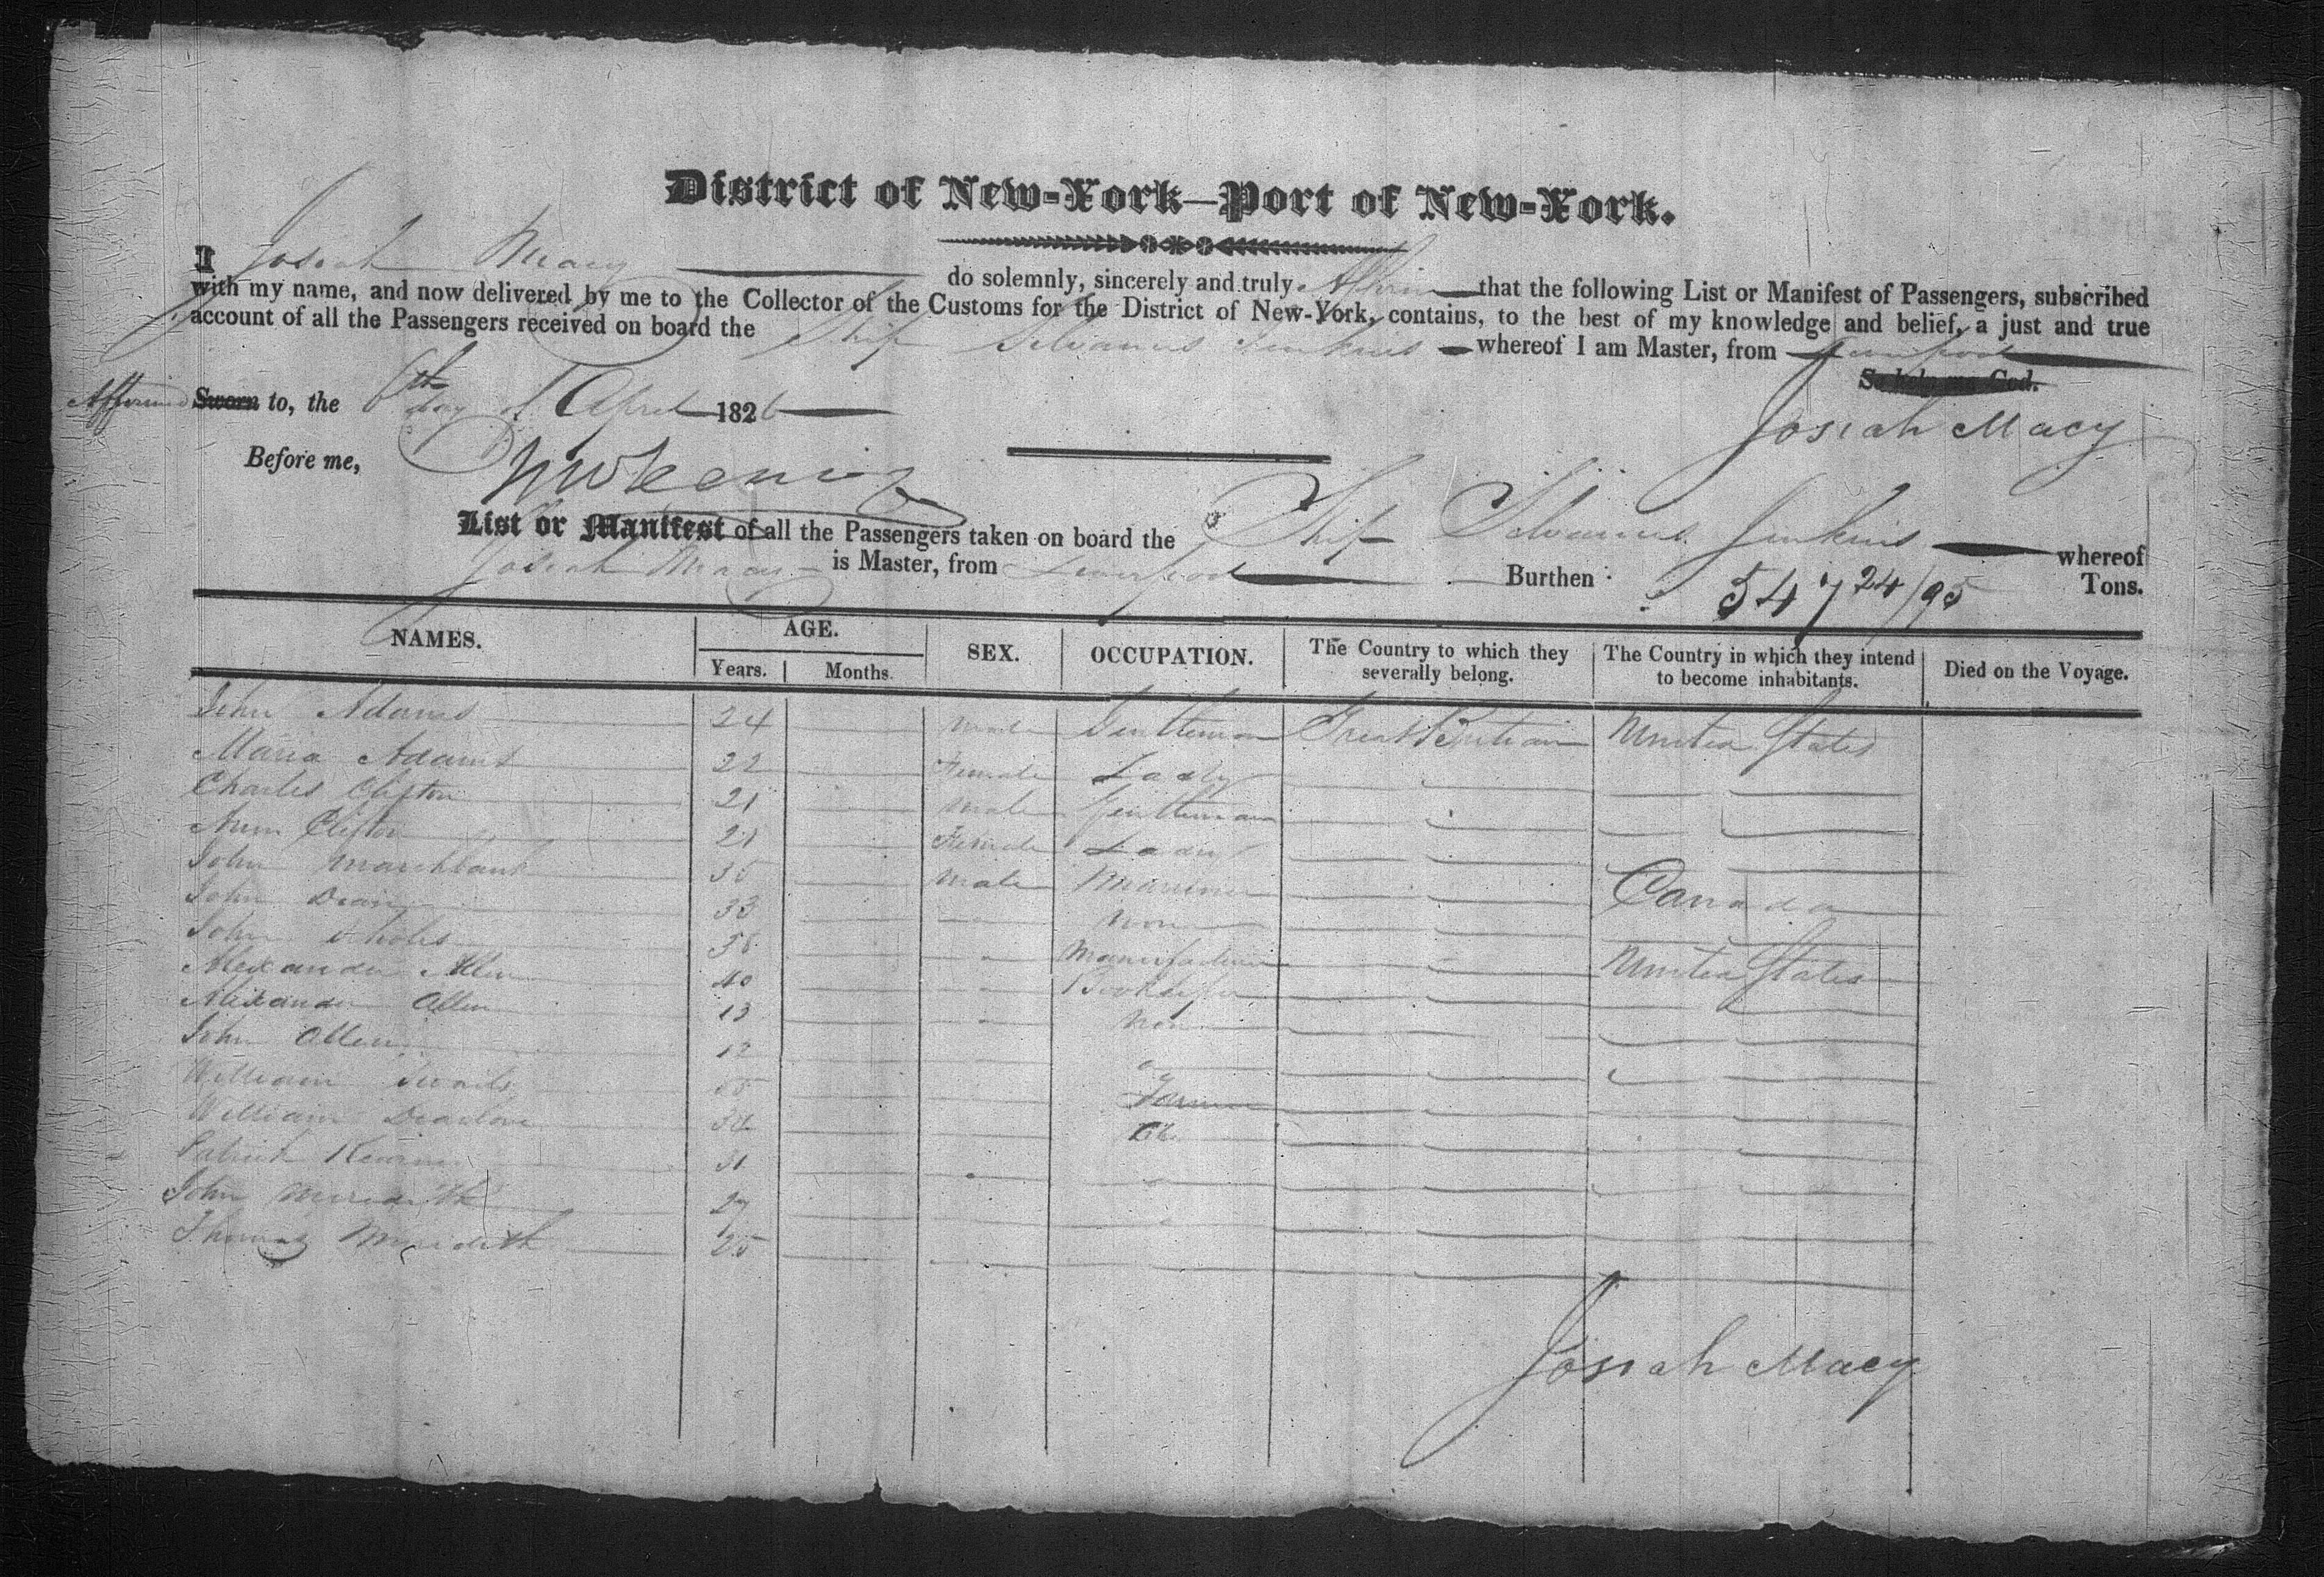 District of New-York—Port of New-York.
I Josiah Macy do solemnly, sincerely and truly Affirm that the following List or Manifest of Passengers, subscribed
with my name, and now delivered by me to the Collector of the Customs for the District of New-York, contains, to the best of my knowledge and belief, a just and true
account of all the Passengers received on board the Ship Silvanus Jenkins whereof I am Master, from Liverpool
So help me God.
Affirmed Sworn to, the 6th day of April 1826
Josiah Macy
Before me,
List or Manifest of all the Passengers taken on board the Ship Silvanus Jenkins whereof
Josiah Macy is Master, from Liverpool Burthen 547 24/95 Tons.
NAMES. AGE. Years. Months. SEX. OCCUPATION. The Country to which they severally belong. The Country in which they intend to become inhabitants. Died on the Voyage.
John Adams 24 male Gentleman Great Britian United States
Maria Adams 22 Female Lady
Charles Clifton 21 male Gentleman
Ann Clifton 21 Female Lady
John Marchbank 35 male Mariner Canada
John Dean 33 non
John 38 Manufacturer United States
Alexander Allen 40 Bookkeeper
Alexander Allen 13 non
John Allen 12
William 55 Farmer
William 34
Patrick 31
John Meredith 27
Thomas Meredith 25
Josiah Macy